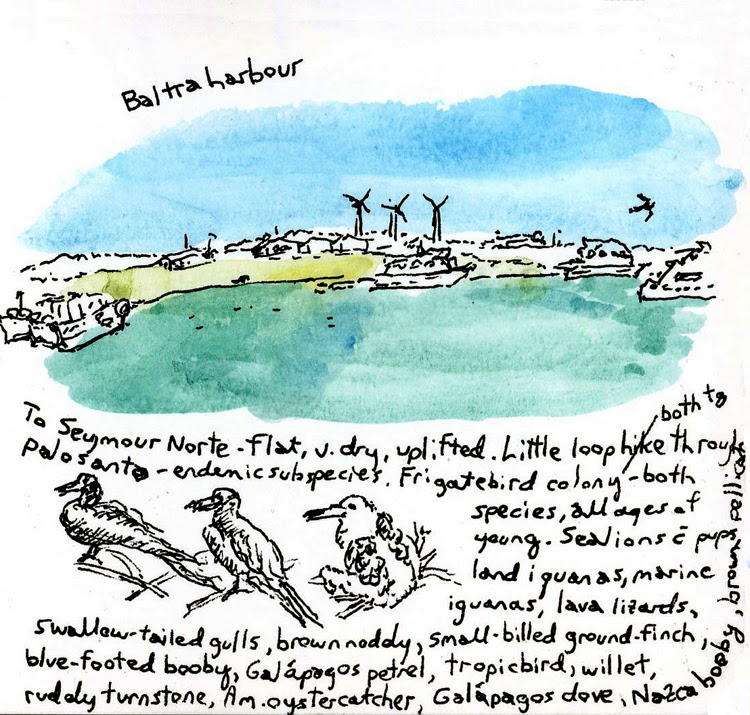 Baltra harbour
To Seymour Norte - flat, v. dry, uplifted. Little loop hike through
palo santo - endemic subspecies. Frigatebird colony - both
species, all ages of
young. Sealions c̄ pups,
land iguanas, marine
iguanas, lava lizards,
swallow-tailed gulls, brown noddy, small-billed ground-finch,
blue-footed booby, Galápagos petrel, tropicbird, willet,
ruddy turnstone, Am. oystercatcher, Galápagos dove, Nazca booby, brown pelican
both